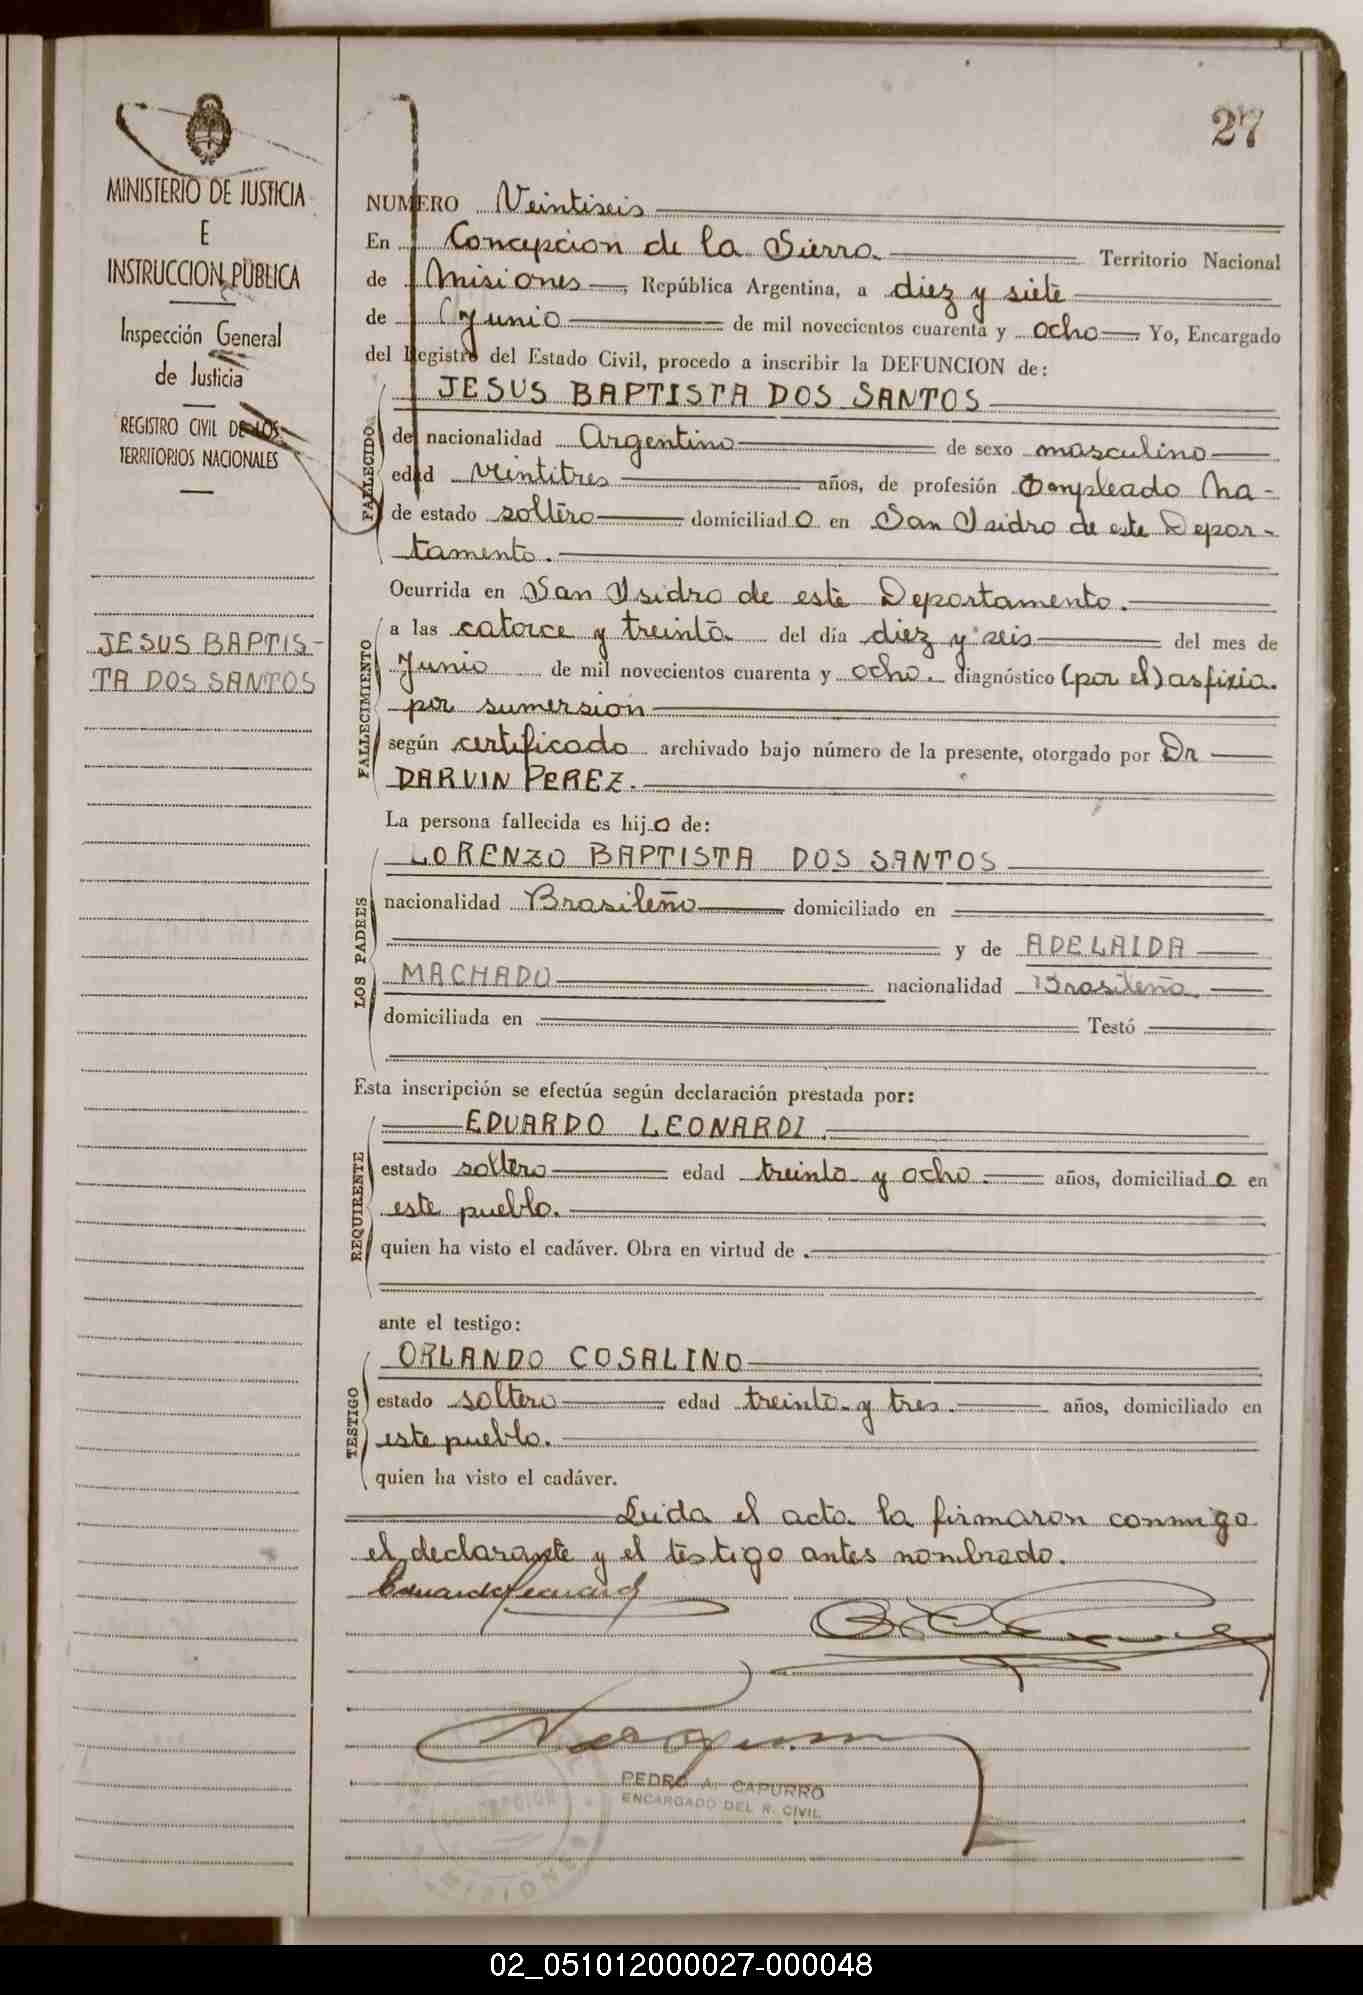 27
MINISTERIO DE JUSTICIA
E
INSTRUCCION PUBLICA
Inspección General
de Justicia
REGISTRO CIVIL DE LOS
TERRITORIOS NACIONALES
JESUS BAPTIS-
TA DOS SANTOS
NUMERO Veintiseis
En Concepcion de la Sierra Territorio Nacional
de Misiones, República Argentina, a diez y siete
de Junio de mil novecientos cuarenta y ocho Yo, Encargado
del Registro del Estado Civil, procedo a inscribir la DEFUNCION de:
JESUS BAPTISTA DOS SANTOS
FALLECIDO
de nacionalidad Argentino de sexo masculino
edad veintitres años, de profesión Empleado Na-
de estado soltero domiciliado en San Isidro de este Depar-
tamento.
Ocurrida en San Isidro de este Departamento.
FALLECIMIENTO
a las catorce y treinta del día diez y seis del mes de
Junio de mil novecientos cuarenta y ocho. diagnóstico (por el) asfixia.
por sumersion
según certificado archivado bajo número de la presente, otorgado por Dr
DARVIN PEREZ.
La persona fallecida es hijo de:
LOS PADRES
LORENZO BAPTISTA DOS SANTOS
nacionalidad Brasileño domiciliado en
y de ADELAIDA
MACHADO nacionalidad Brasileña
domiciliada en Testó
Esta inscripción se efectúa según declaración prestada por:
REQUIRENTE
EDUARDO LEONARDI.
estado soltero edad treinta y ocho. años, domiciliado en
este pueblo.
quien ha visto el cadáver. Obra en virtud de
ante el testigo:
TESTIGO
ORLANDO COSALINO
estado soltero edad treinta y tres. años, domiciliado en
este pueblo.
quien ha visto el cadáver.
Leida el acta la firmaron conmigo
el declarante y el testigo antes nombrado.
Eduardo Leonardi
PEDRO A. CAPURRO
ENCARGADO DEL R. CIVIL
CONCEPCION
MISIONES
02_051012000027-000048